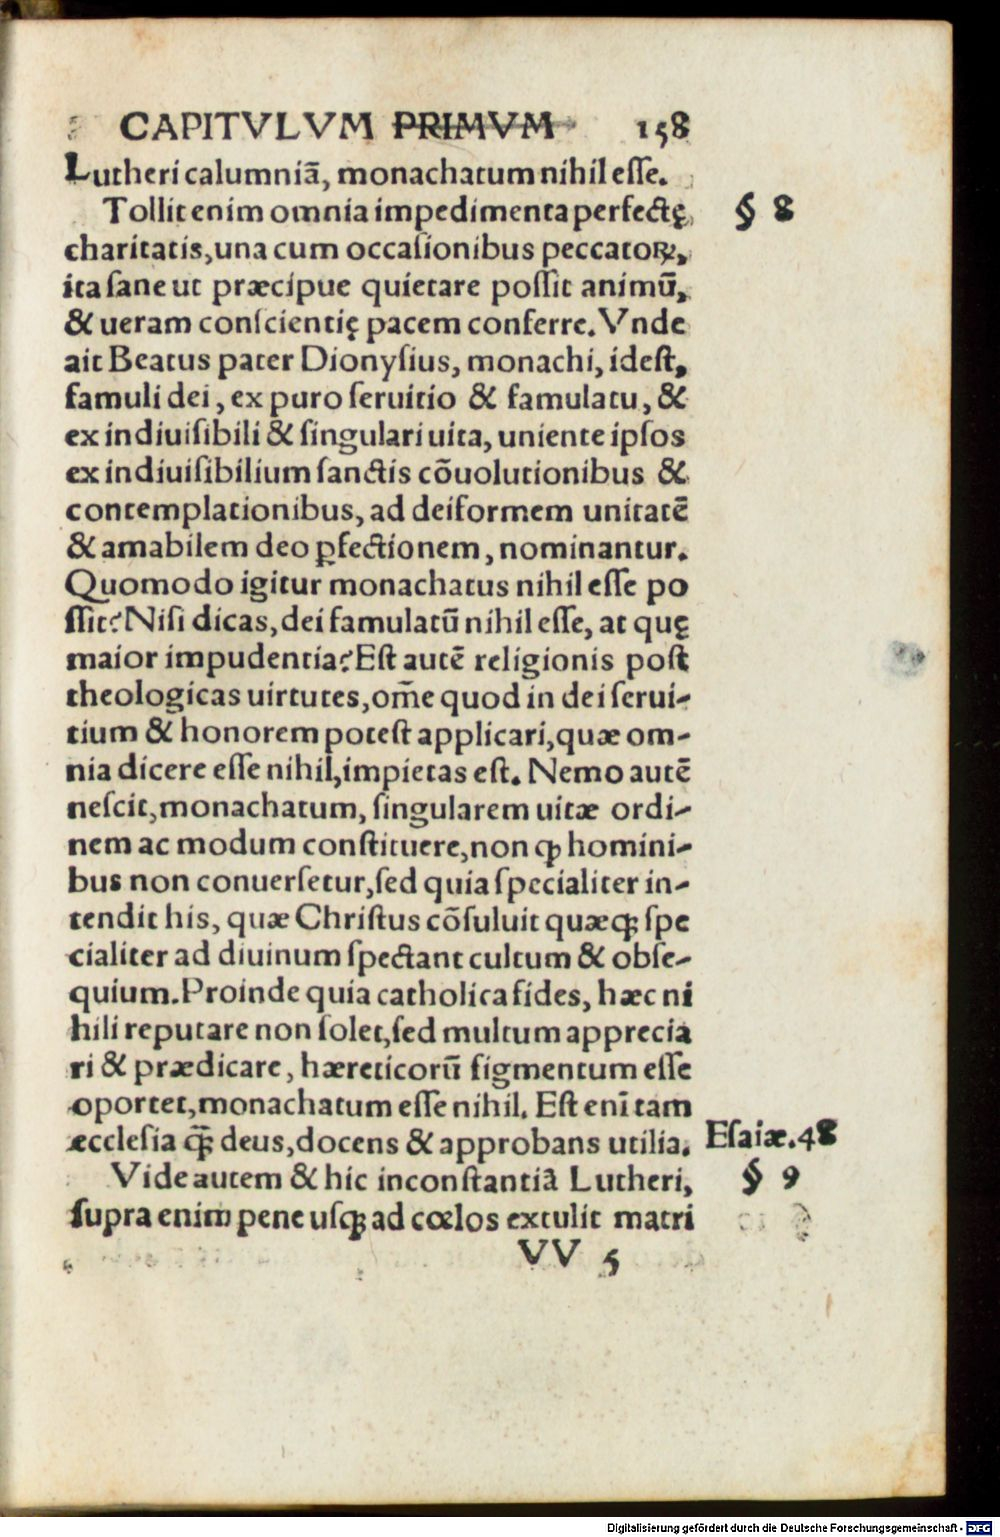 CAPITVLVM PRIMVM 158
Lutheri calumniā, monachatum nihil eſſe.
Tollit enim omnia impedimenta perfectę § 8
charitatis, una cum occaſionibus peccatoꝝ,
ita ſane ut præcipue quietare poſſit animū,
& ueram conſcientię pacem conferre. Vnde
ait Beatus pater Dionyſius, monachi, ideſt,
famuli dei, ex puro ſeruitio & famulatu, &
ex indiuiſibili & ſingulari uita, uniente ipſos
ex indiuiſibilium ſanctis cōuolutionibus &
contemplationibus, ad deiformem unitatē
& amabilem deo ꝑfectionem, nominantur.
Quomodo igitur monachatus nihil eſſe po
ſſit? Niſi dicas, dei famulatū nihil eſſe, at quę
maior impudentia? Eſt autē religionis poſt
theologicas uirtutes, om̄e quod in dei ſerui-
tium & honorem poteſt applicari, quæ om-
nia dicere eſſe nihil, impietas eſt. Nemo autē
neſcit, monachatum, ſingularem uitæ ordi-
nem ac modum conſtituere, non ꝙ homini-
bus non conuerſetur, ſed quia ſpecialiter in-
tendit his, quæ Chriſtus cōſuluit quæꝙ ſpe
cialiter ad diuinum ſpectant cultum & obſe-
quium. Proinde quia catholica fides, hæc ni
hili reputare non ſolet, ſed multum apprecia
ri & prædicare, hæreticorū figmentum eſſe
oportet, monachatum eſſe nihil. Eſt enī tam
æcclefia ꝙ̄ deus, docens & approbans utilia. Eſaiæ. 48
Vide autem & hic inconſtantiā Lutheri, § 9
ſupra enim pene uſꝙ ad cœlos extulit matri
VV 5
Digitalisierung gefördert durch die Deutsche Forschungsgemeinschaft - DFG